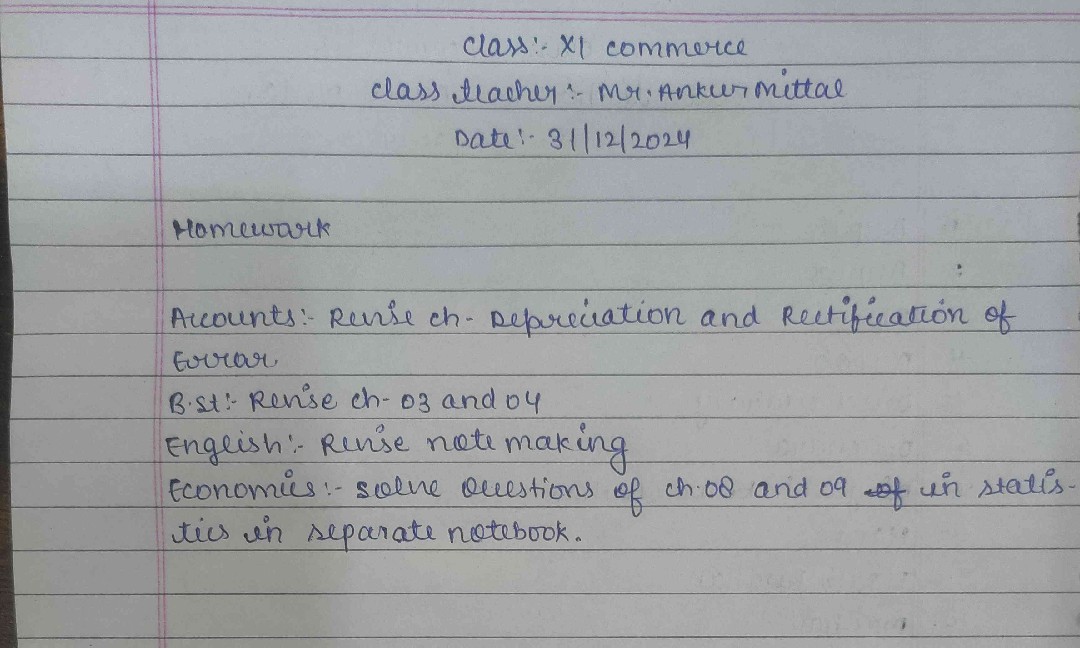 Class:- XI commerce
Class teacher:- Mr. Ankur Mittal
Date:- 31/12/2024
Homework
Accounts:- Revise ch- Depreciation and Rectification of
Error
B.st:- Revise ch- 03 and 04
English:- Revise note making
Economics:- Solve Questions of ch.08 and 09 of in statis-
tics in separate notebook.